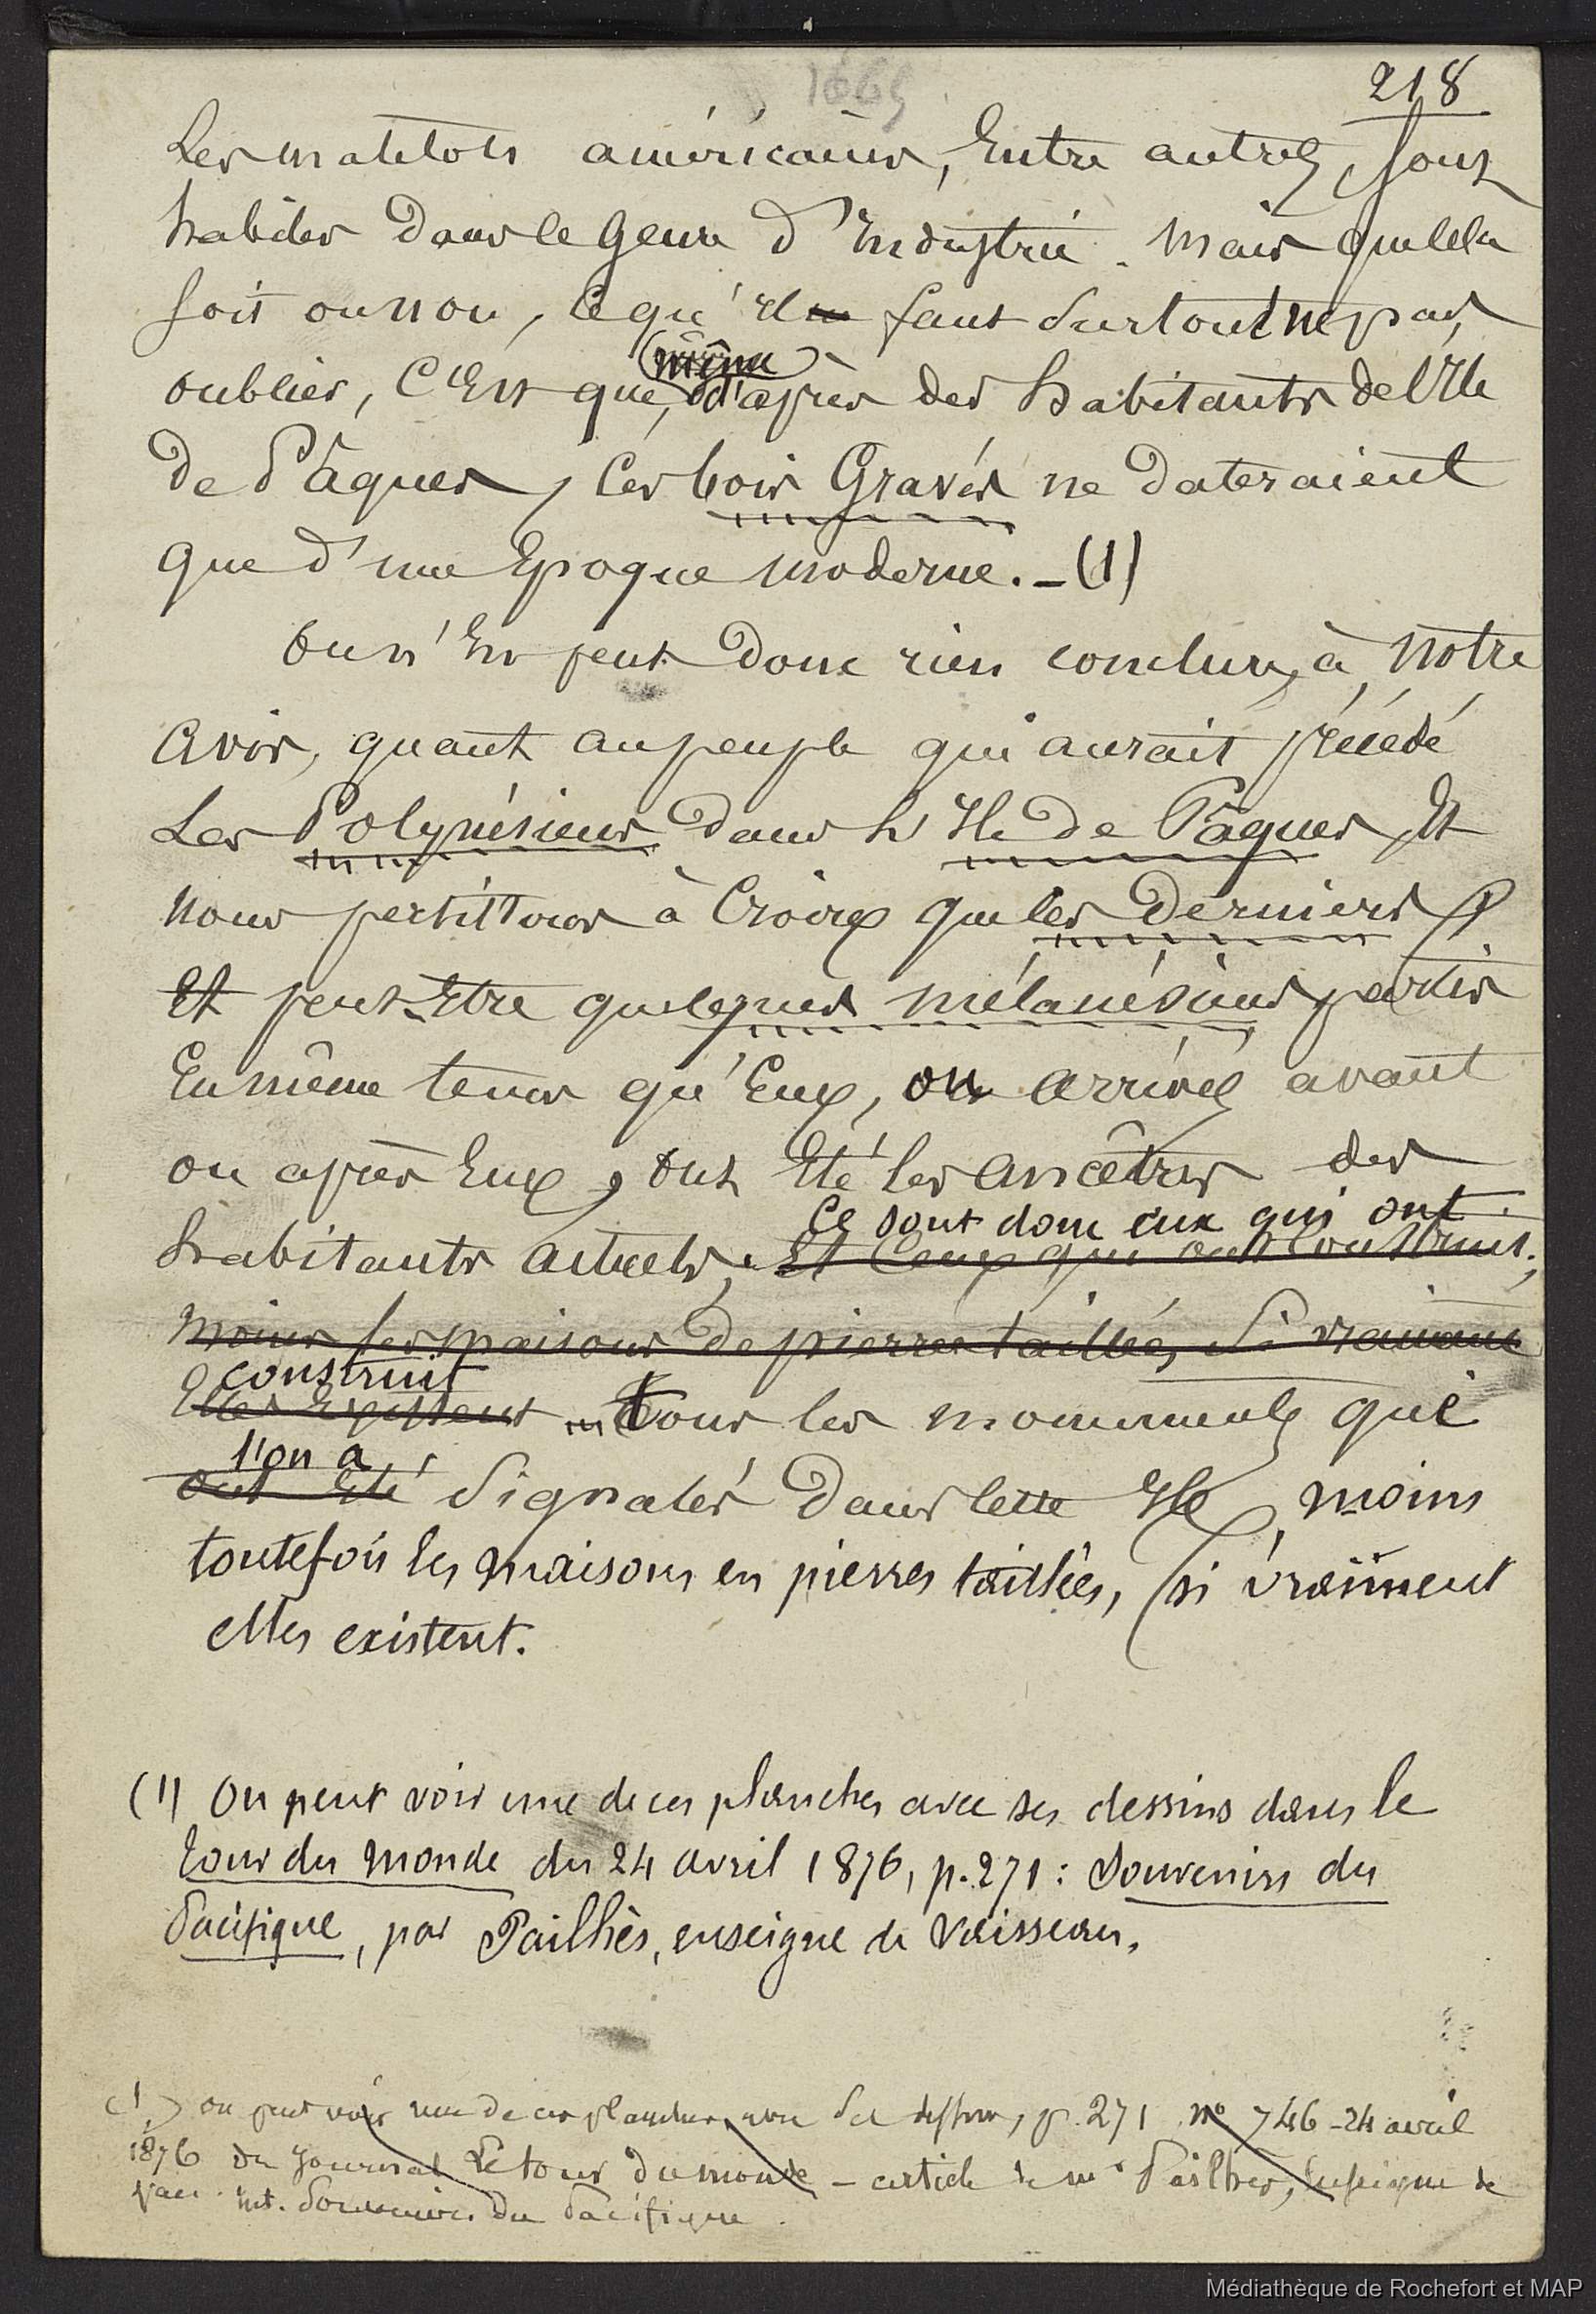 1669
218
Les matelots américains, Entre autres, sont
habiles dans le genre d'Industrie. Mais que cela
soit ou non, ce qu'il faut surtout ne pas
même
oublier, C'Est que, d'après des habitants de l'Ile
de Pâques, ces bois Gravés ne dateraient
que d'une Epoque moderne. _ (1)
On n'En peut donc rien conclure, à notre
avis, quant au peuple qui aurait précédé
Les Polynésiens dans l'Ile de Pâques, Et
nous persistons à Croire que ces derniers
Et peut-Etre quelques mélanésiens partis
En même tems qu'Eux, ou arrivés avant
ou après Eux, ont Eté les ancêtres des
Ce sont donc eux qui ont
habitants actuels; Et Ceux qui ont construit,
moins les maisons de pierres taillées, si vraiment
construit
Elles Existent tous les monuments que
l'on a
ont Eté signalés dans cette Ile, moins
toutefois les maisons en pierres taillées, si vraiment
elles existent.
(1) On peut voir une de ces planches avec ses dessins dans le
Tour du Monde du 24 avril 1876, p. 271 : Souvenirs du
Pacifique, par Pailhès, enseigne de vaisseau.
(1) on peut voir une de ces planches, avec ses dessins, p. 271 no 746 - 24 avril
1876 du journal Le tour du monde - article de mr Pailhès, Enseigne de
vaiss. int. Souvenirs du Pacifique.
Médiathèque de Rochefort et MAP